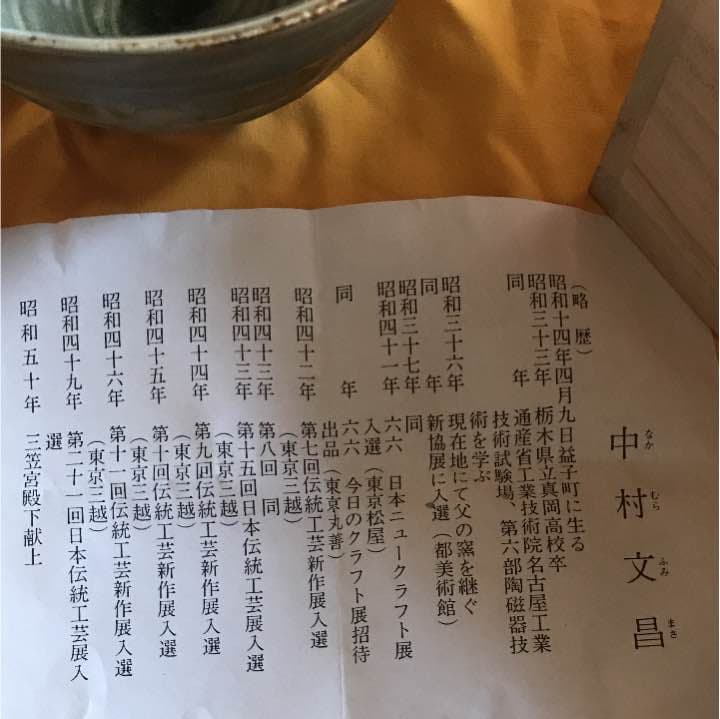 中村文昌
なか むら ふみ まさ
(略歴)
昭和十四年四月九日益子町に生る
昭和三十三年 栃木県立真岡高校卒
同 年 通産省工業技術院名古屋工業
技術試験場、第六部陶磁器技
術を学ぶ
昭和三十六年 現在地にて父の窯を継ぐ
同 年 新協展に入選(都美術館)
昭和三十七年 同
昭和四十一年 六六 日本ニュークラフト展
入選(東京松屋)
同 年 六六 今日のクラフト展招待
出品(東京丸善)
昭和四十二年 第七回伝統工芸新作展入選
(東京三越)
昭和四十三年 第八回 同
昭和四十三年 第十五回日本伝統工芸展入選
(東京三越)
昭和四十四年 第九回伝統工芸新作展入選
(東京三越)
昭和四十五年 第十回伝統工芸新作展入選
(東京三越)
昭和四十六年 第十一回伝統工芸新作展入選
(東京三越)
昭和四十九年 第二十一回日本伝統工芸展入
選
昭和五十年 三笠宮殿下献上